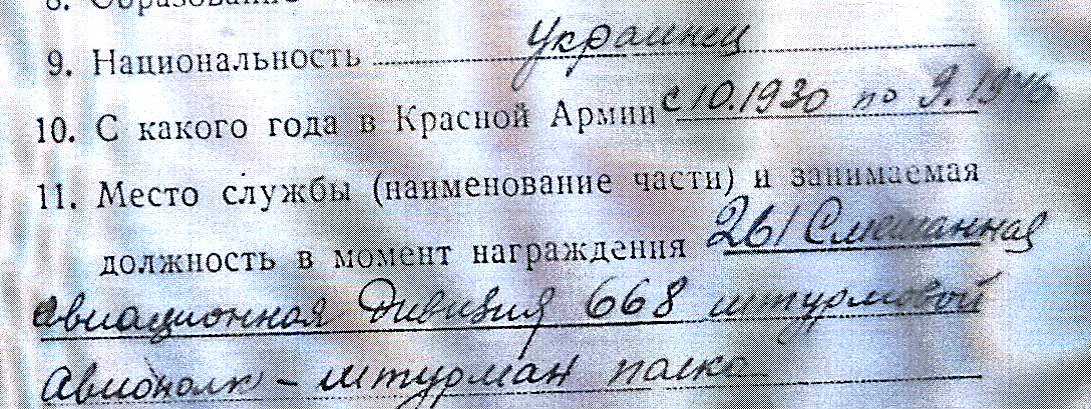 8. Образование
9. Национальность Украинец
10. С какого года в Красной Армии с 10.1930 по 9.19
11. Место службы (наименование части) и занимаемая
должность в момент награждения 261 Смешанная
авиационная Дивизия 668 штурмовой
Авиополк - штурман полка